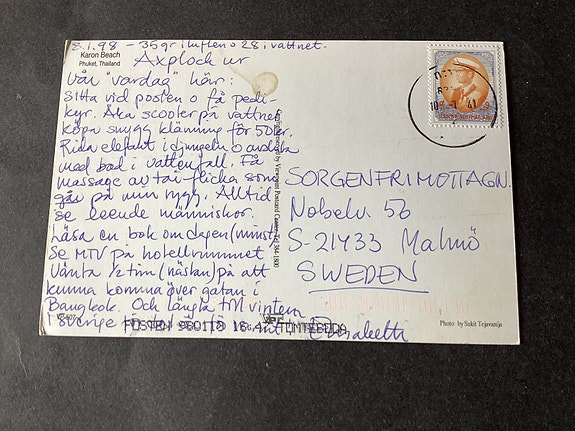 8.1.98 - 35 gr i luften o 28 i vattnet.
Karon Beach
Phuket, Thailand
Axplock ur
vår "vardag" här:
Sitta vid poolen o få pedi-
kyr. Åka scooter på vattnet
köpa snygg klänning för 50:er.
Rida elefant i djungeln o avsluta
med bad i vattenfall. Få
massage av tai-flicka som
går på min rygg. Alltid
se leende människor.
Läsa en bok om dagen (minst).
Se MTV på hotellrummet
Vänta ½ tim (nästan) på att
kunna komma över gatan i
Bangkok. Och längta till vintern
i Sverige
Elisabeth
SORGENFRIMOTTAGN.
Nobelv. 56
S-21433 Malmö
SWEDEN
POSTEN 980118 18.47
Photo by Sakit Tejavanija